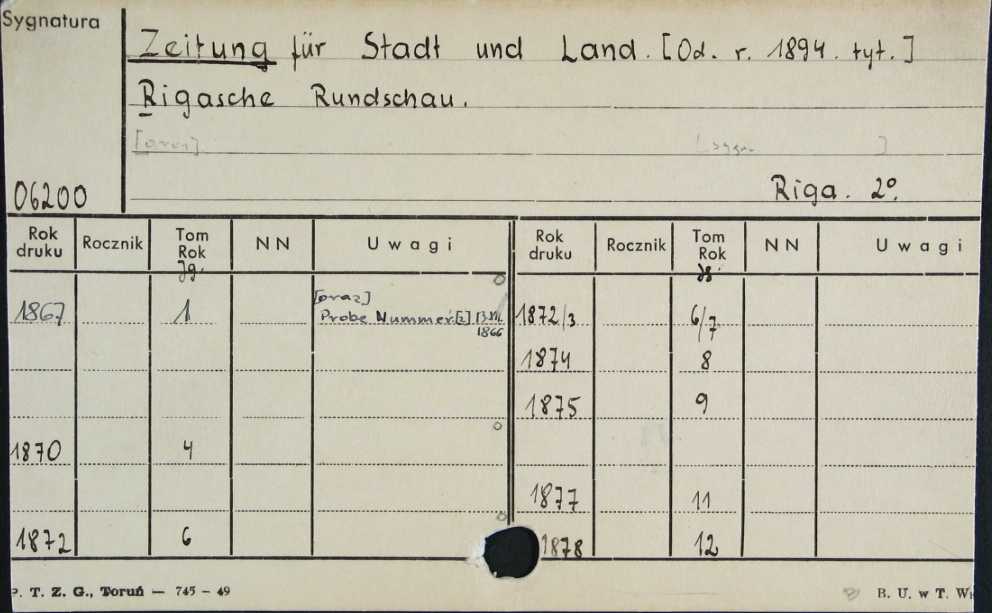 Sygnatura
Zeitung für Stadt und Land. [Od. r. 1894. tyt.]
Rigasche Rundschau.
[oraz] [sygn. ]
06200 Riga. 2º.
Rok druku Rocznik Tom Rok Jg. NN Uwagi Rok druku Rocznik Tom Rok Jg. NN Uwagi
1867 1 [oraz] Probe Nummer. 1866 1872/3 6/7
1874 8
1875 9
1870 4
1877 11
1872 6 1878 12
P. T. Z. G., Toruń — 745 – 49 B. U. w T.